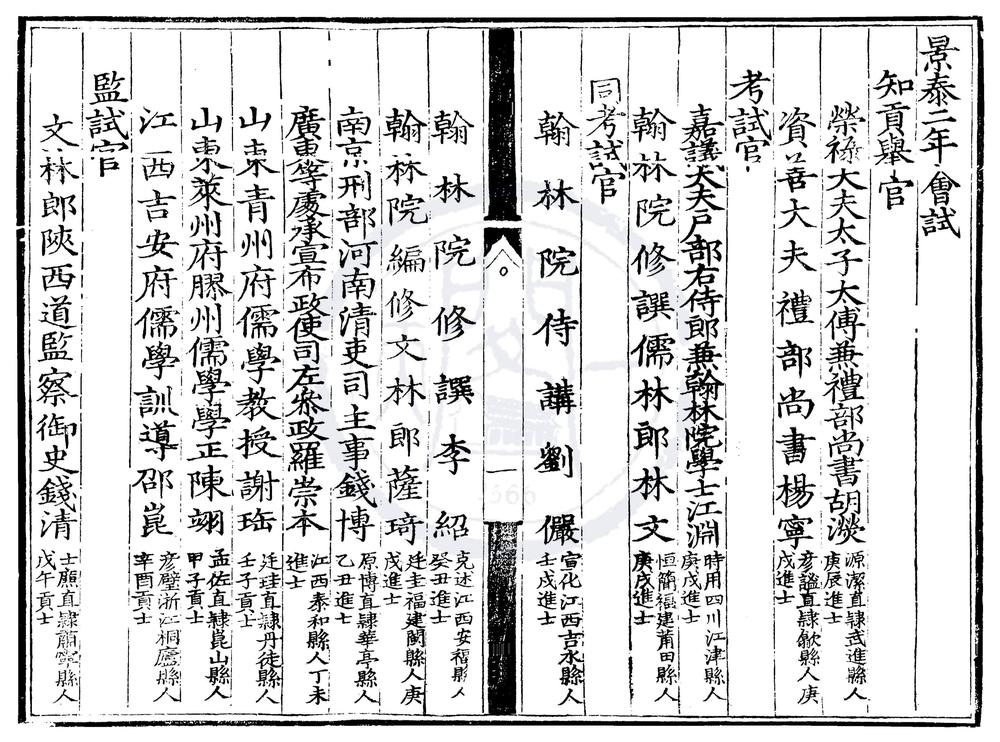 景泰二年會試
知貢舉官
榮祿大夫太子太傅兼禮部尚書胡濙 源潔直隸武進縣人
庚辰進士
資善大夫禮部尚書楊寧 彥謐直隸歙縣人庚
戌進士
考試官
嘉議大夫戶部右侍郎兼翰林院學士江淵 時用四川江津縣人
庚戌進士
翰林院修譔儒林郎林文 恒簡福建莆田縣人
庚戌進士
同考試官
翰林院侍講劉儼 宣化江西吉水縣人
壬戌進士
翰林院修譔李紹 克述江西安福縣人
癸丑進士
翰林院編修文林郎薩琦 廷圭福建閩縣人庚
戌進士
南京刑部河南清吏司主事錢博 原博直隸華亭縣人
乙丑進士
廣東等處承宣布政使司左叅政羅崇本 江西泰和縣人丁未
進士
山東青州府儒學教授謝㻞 廷珪直隸丹徒縣人
壬子貢士
山東萊州府膠州儒學學正陳翊 孟佐直隸崑山縣人
甲子貢士
江西吉安府儒學訓導邵崑 彥璧浙江桐廬縣人
辛酉貢士
監試官
文林郎陝西道監察御史錢清 士廉直隸肅寧縣人
戊午貢士